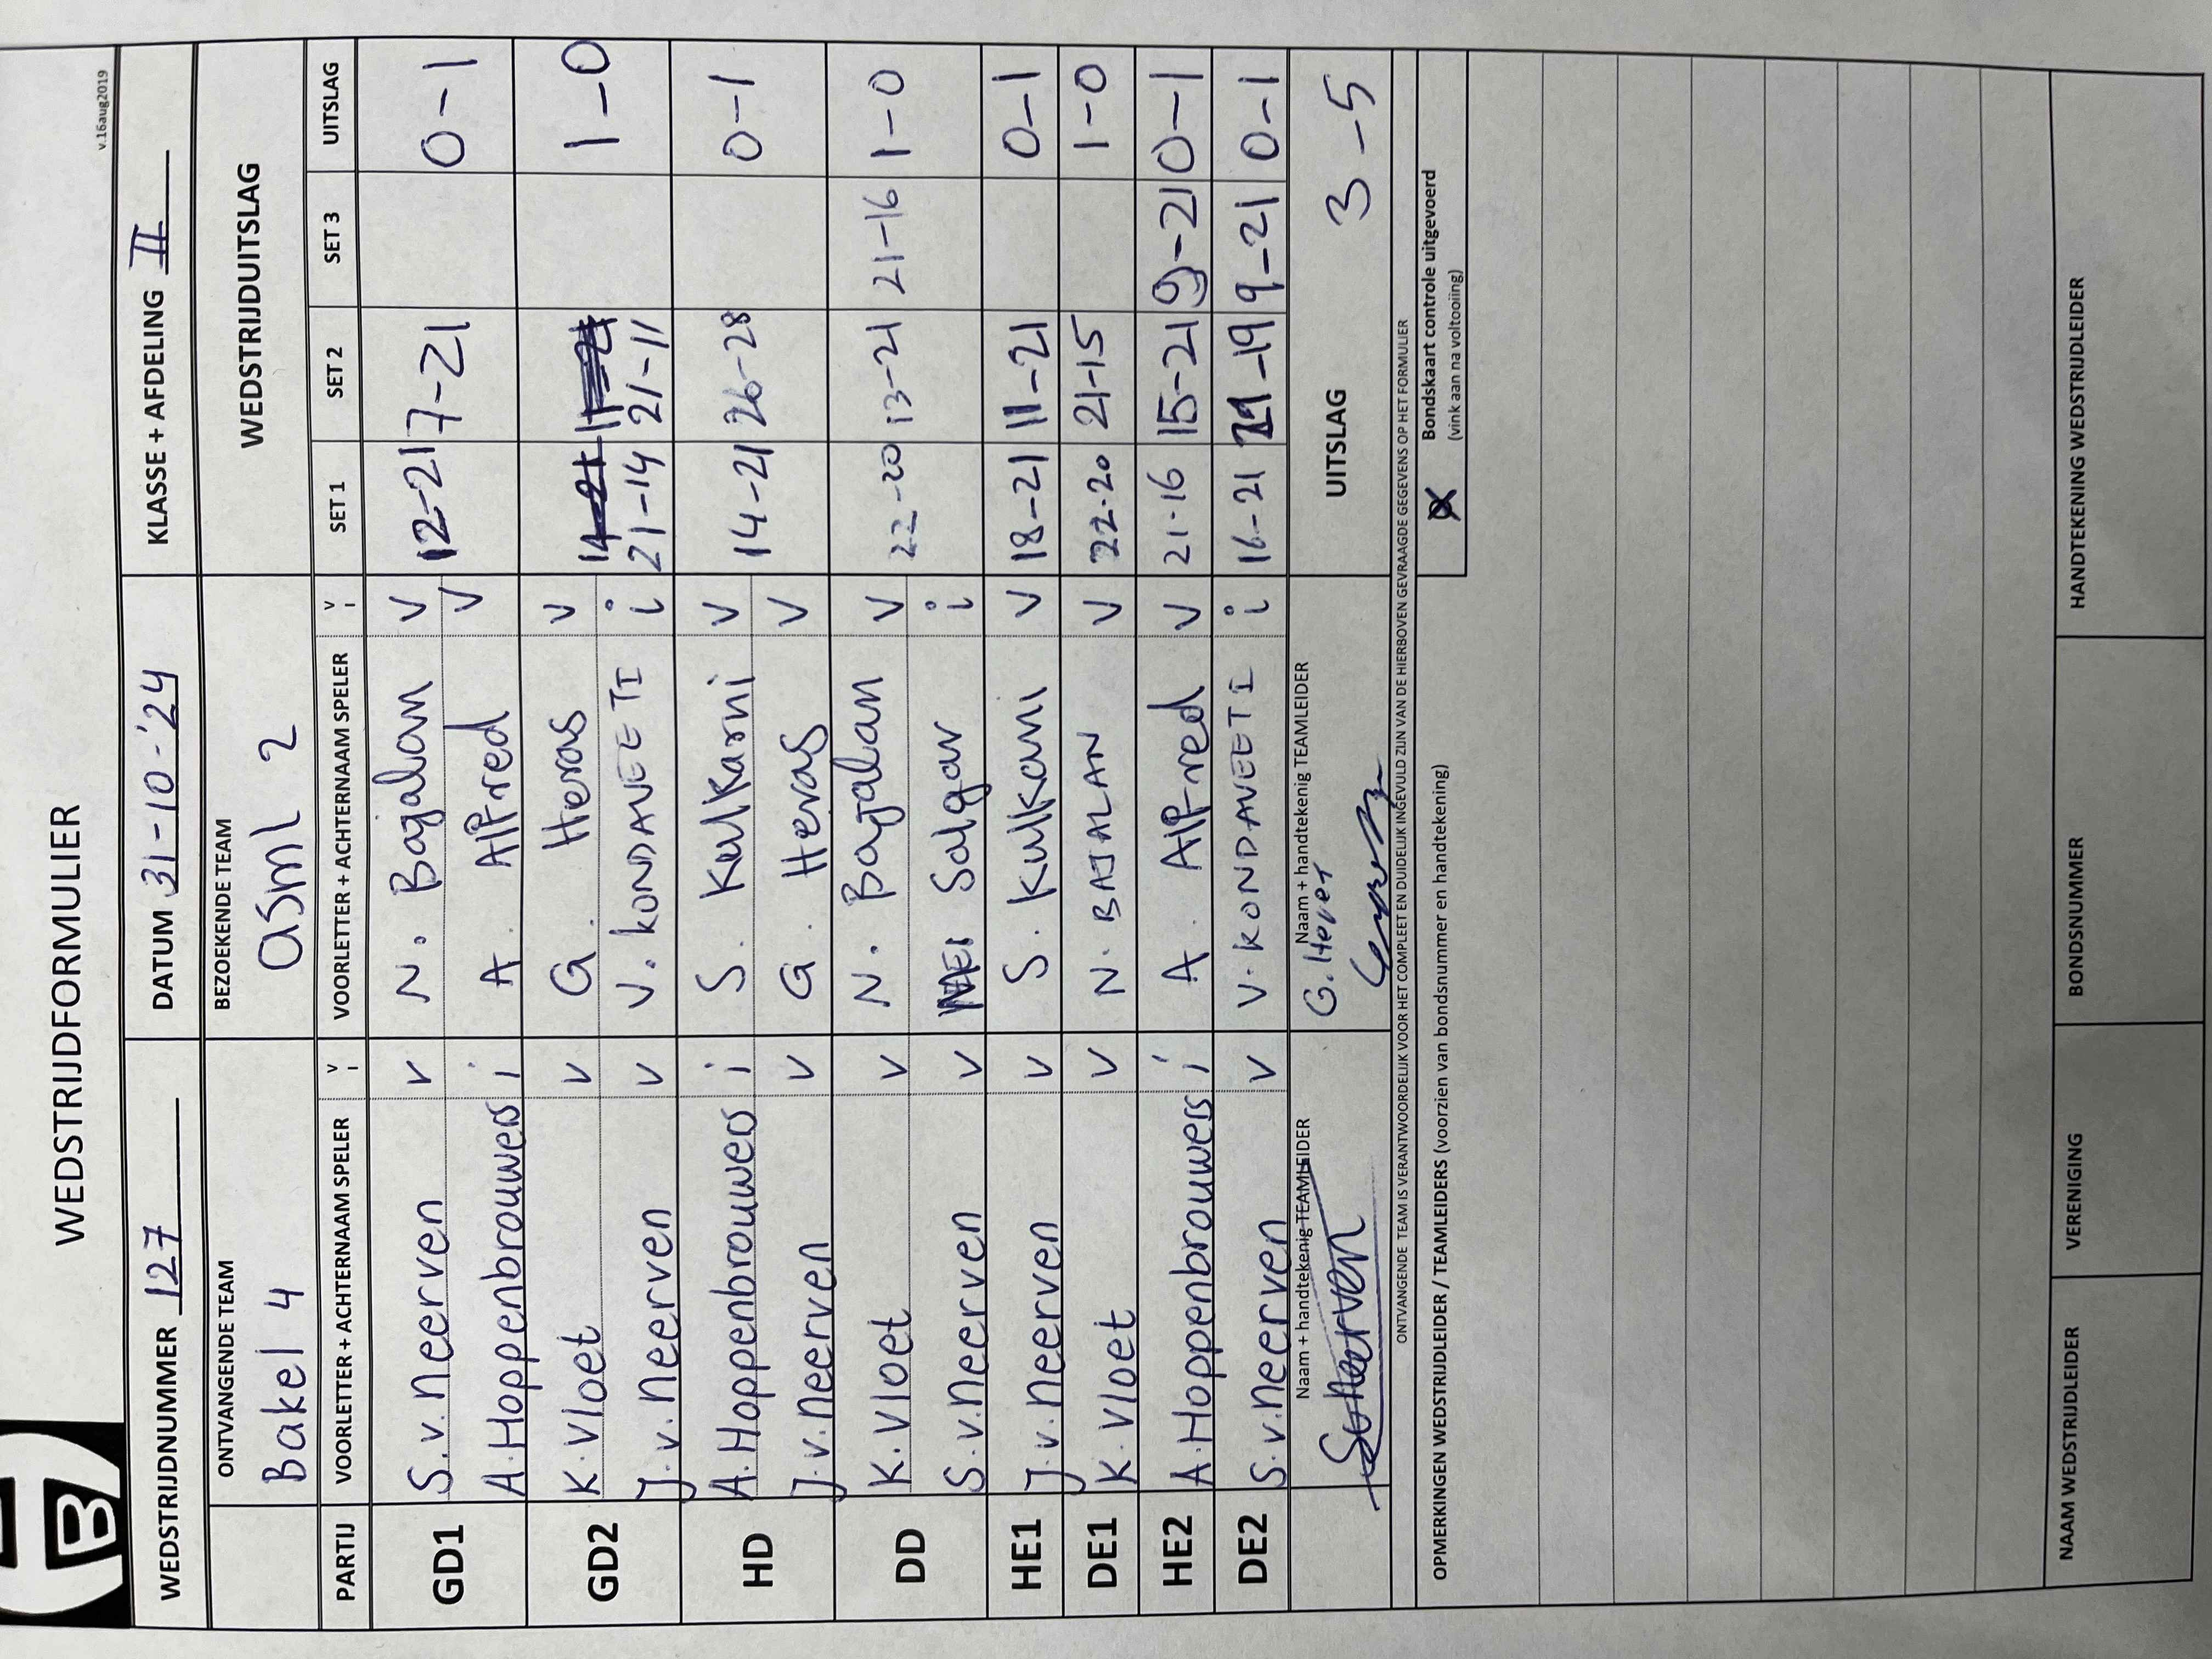 B
WEDSTRIJDFORMULIER
v.16aug2019
WEDSTRIJDNUMMER 127 DATUM 31-10-'24 KLASSE + AFDELING II
ONTVANGENDE TEAM BEZOEKENDE TEAM WEDSTRIJDUITSLAG
Bakel 4 asml 2
PARTIJ VOORLETTER + ACHTERNAAM SPELER V I VOORLETTER + ACHTERNAAM SPELER V I SET 1 SET 2 SET 3 UITSLAG
GD1 S.v.Neerven v N. Bajalan v 12-21 7-21 0-1
A.Hoppenbrouwers i A. Alfred v
GD2 K.Vloet v G. Heras v 14-21 1-0
J.v.Neerven v V. KONDAVEETI i 21-14 21-11
HD A.Hoppenbrouwers i S. Kulkarni v 14-21 26-28 0-1
J.v.Neerven v G. Heras v
DD K.Vloet v N. Bajalan v 22-20 13-21 21-16 1-0
S.v.Neerven v Salgar i
HE1 J.v.Neerven v S. Kulkarni v 18-21 11-21 0-1
DE1 K.Vloet v N. BAJALAN v 22-20 21-15 1-0
HE2 A.Hoppenbrouwers i A. Alfred v 21-16 15-21 9-21 0-1
DE2 S.v.Neerven v V. KONDAVEETI i 16-21 21-19 9-21 0-1
Naam + handtekenig TEAMLEIDER Naam + handtekenig TEAMLEIDER UITSLAG 3-5
G.
ONTVANGENDE TEAM IS VERANTWOORDELIJK VOOR HET COMPLEET EN DUIDELIJK INGEVULD ZIJN VAN DE HIERBOVEN GEVRAAGDE GEGEVENS OP HET FORMULIER
OPMERKINGEN WEDSTRIJDLEIDER / TEAMLEIDERS (voorzien van bondsnummer en handtekening)
Bondskaart controle uitgevoerd
(vink aan na voltooiing)
NAAM WEDSTRIJDLEIDER VERENIGING BONDSNUMMER HANDTEKENING WEDSTRIJDLEIDER